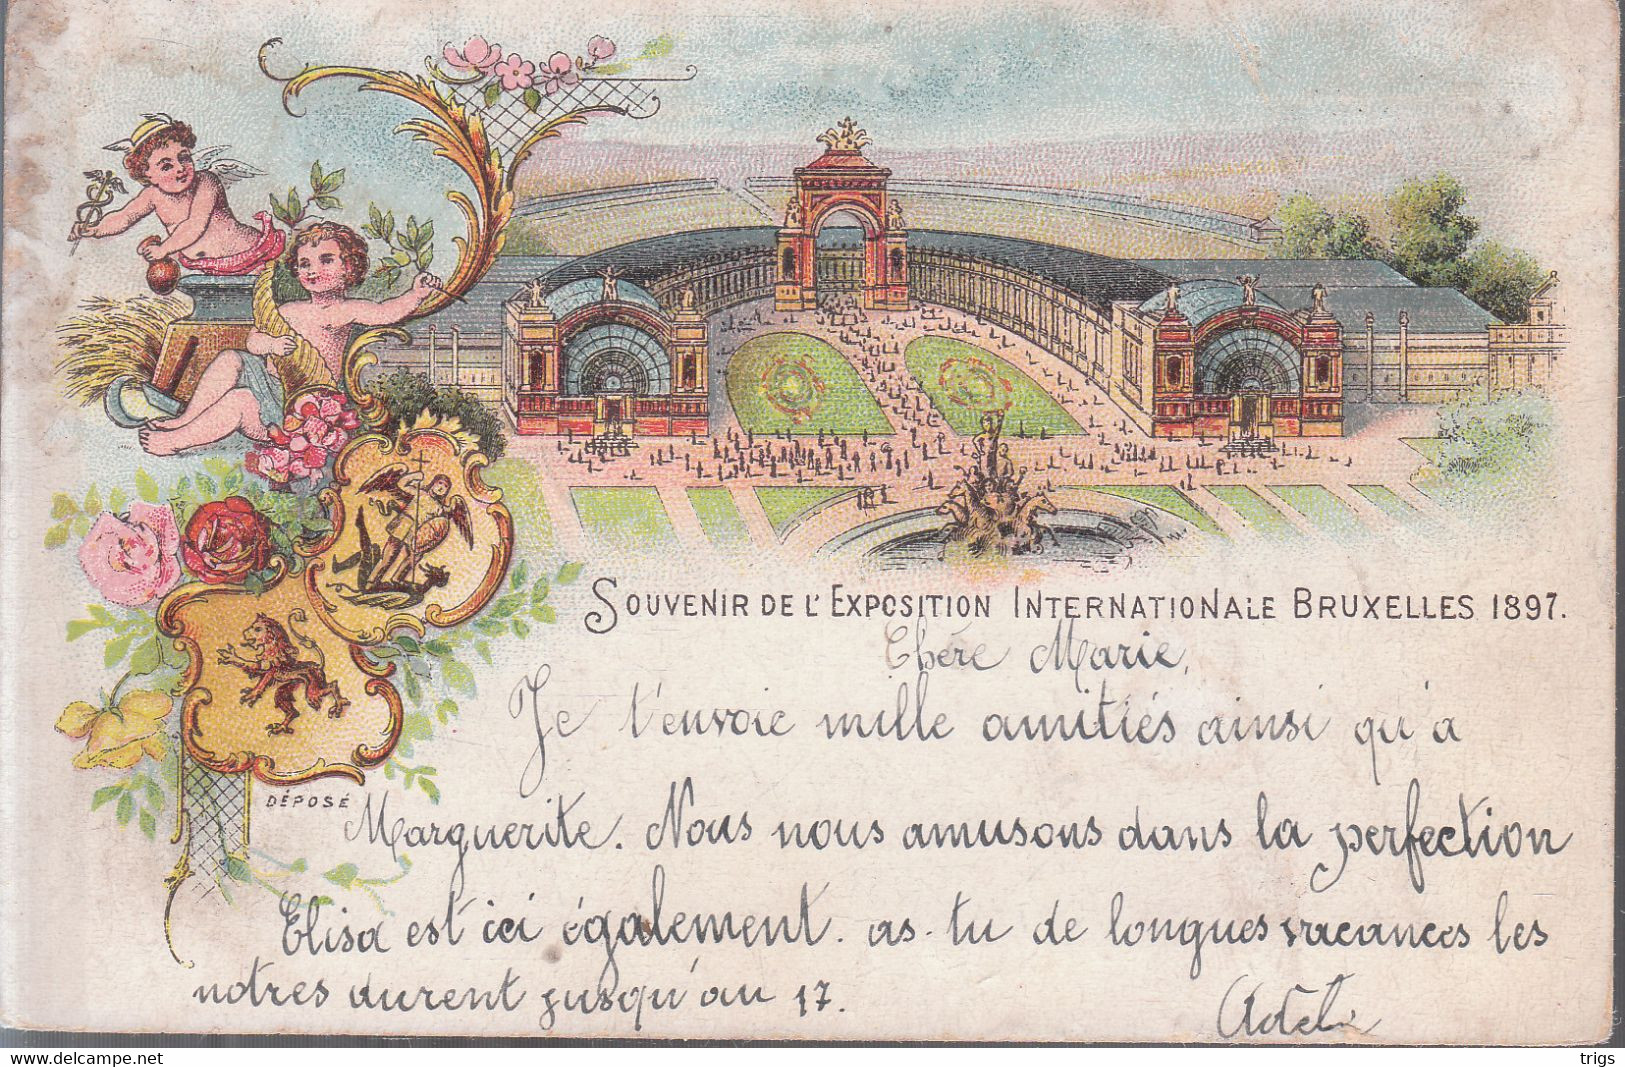 SOUVENIR DE L'EXPOSITION INTERNATIONALE BRUXELLES 1897.
Chère Marie,
Je t'envoie mille amitiés ainsi qu'à
DÉPOSÉ
Marguerite. Nous nous amusons dans la perfection
Elisa est ici également. as-tu de longues vacances les
notres durent jusqu'au 17.
delcampe.net
trigs